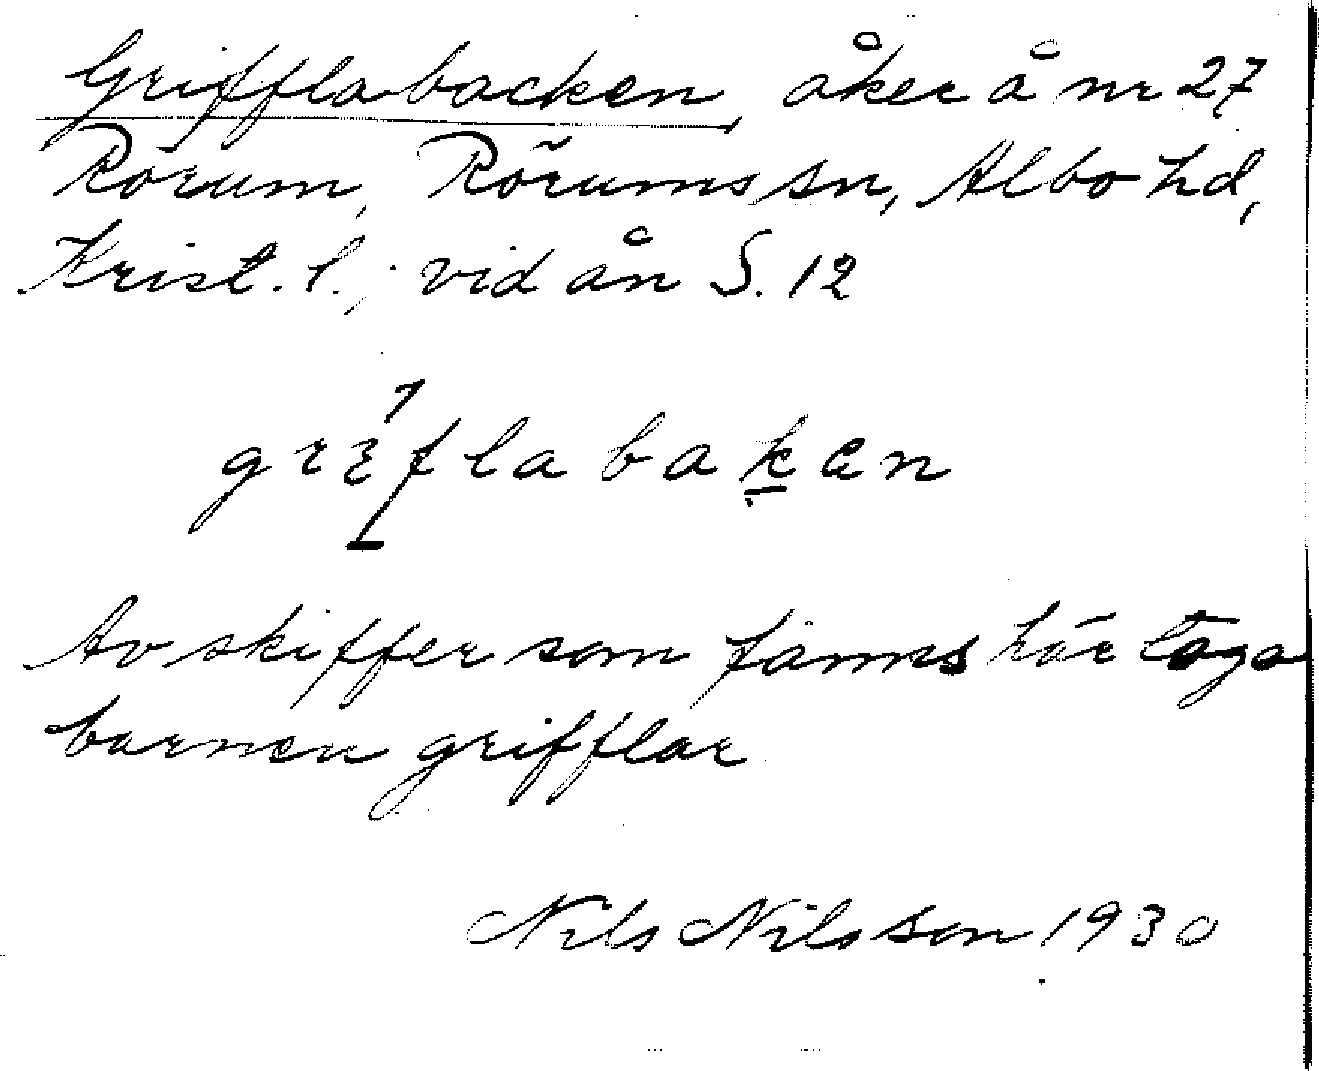 Grifflabacken, åker å nr 27
Rörum, Rörums sn, Albo hd,
Krist. l.; vid ån S. 12
grɛfla baken
Av skiffer som fanns här toga
barnen grifflar
Nils Nilsson 1930